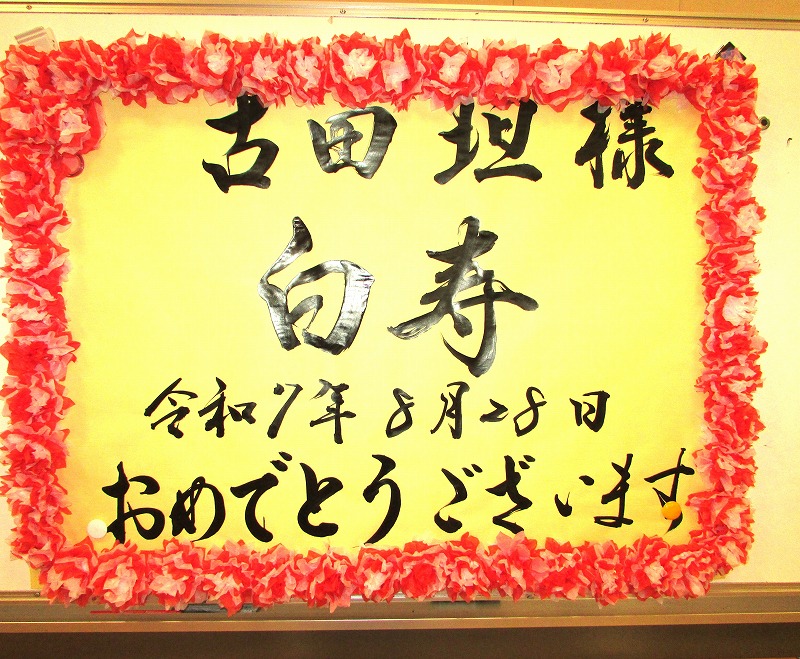 古田坦様
白寿
令和7年 8月28日
おめでとうございます